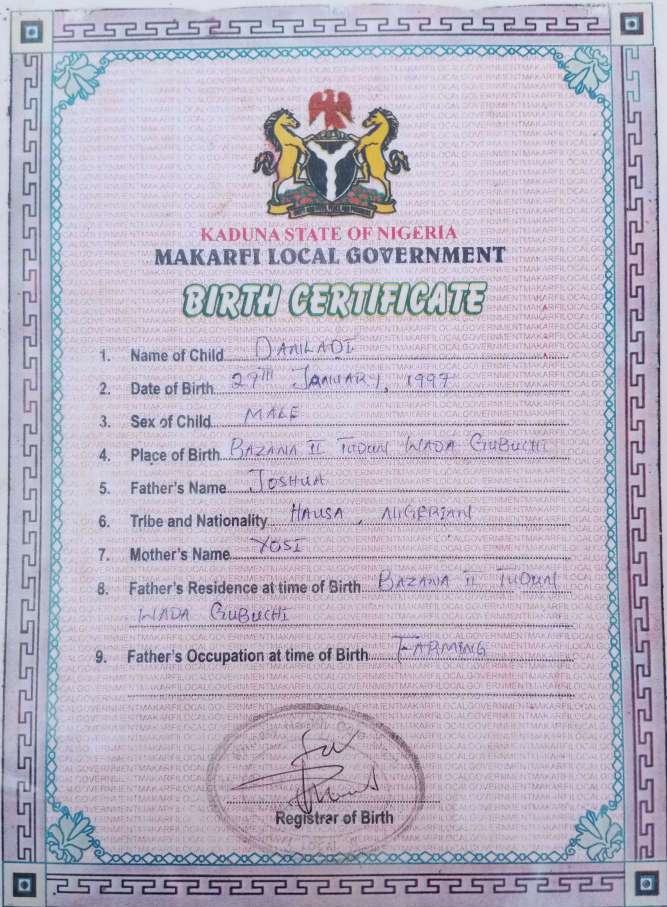 KADUNA STATE OF NIGERIA
MAKARFI LOCAL GOVERNMENT
BIRTH CERTIFICATE
1. Name of Child DANLADI
2. Date of Birth 27TH JANUARY, 1997
3. Sex of Child MALE
4. Place of Birth BAZANA II TUDUN WADA GUBUCHI
5. Father's Name JOSHUA
6. Tribe and Nationality HAUSA, NIGERIAN
7. Mother's Name YOSI
8. Father's Residence at time of Birth BAZANA II TUDUN
WADA GUBUCHI
9. Father's Occupation at time of Birth FARMING
Registrar of Birth